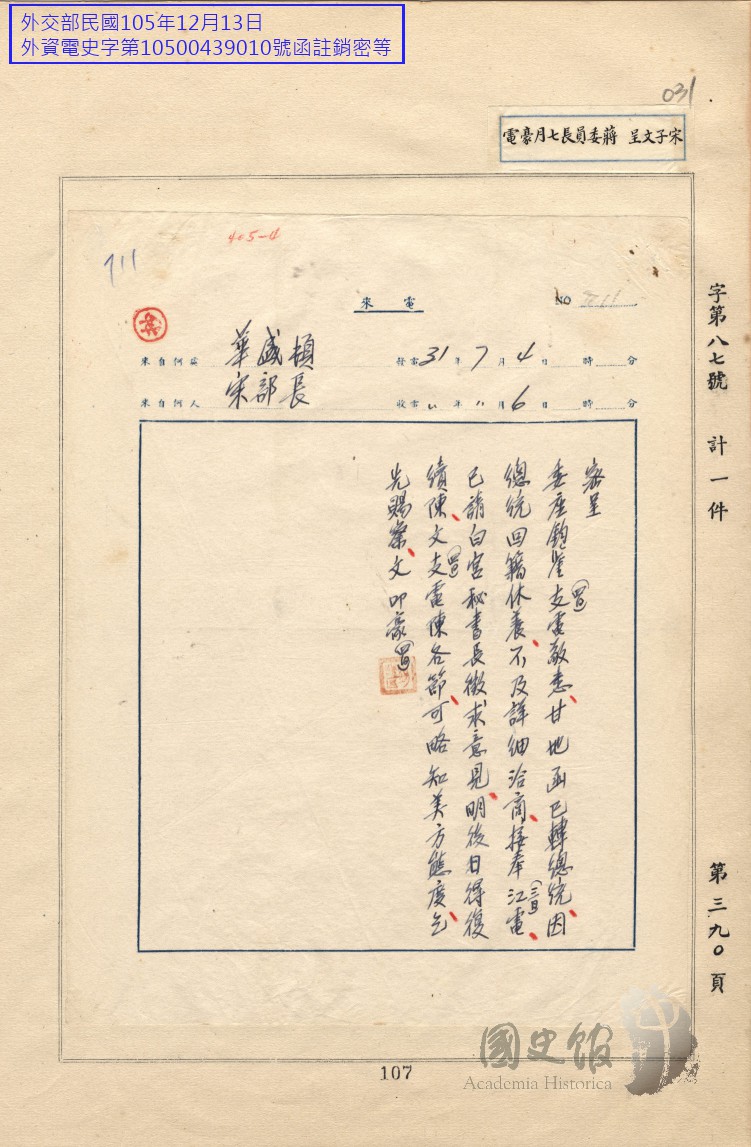 外交部民國105年12月13日
外資電史字第10500439010號函註銷密等
031
宋子文呈 蔣委員長七月豪電
字第八七號 計一件 第三九〇頁
405-4
711
來電
NO 711
來自何處 華盛頓
發電31年7月4日 時 分
來自何人 宋部長
收電〃年〃月6日 時 分
密呈
委座鈞鑒支(四日)電敬悉甘地函已轉總統因
總統回籍休養不及詳細洽商接奉江(三日)電
已請白宮秘書長徵求意見明後日得復
續陳文支(四日)電陳各節可略知美方態度乞
先賜察文叩豪(四日)
107
國史館
Academia Historica